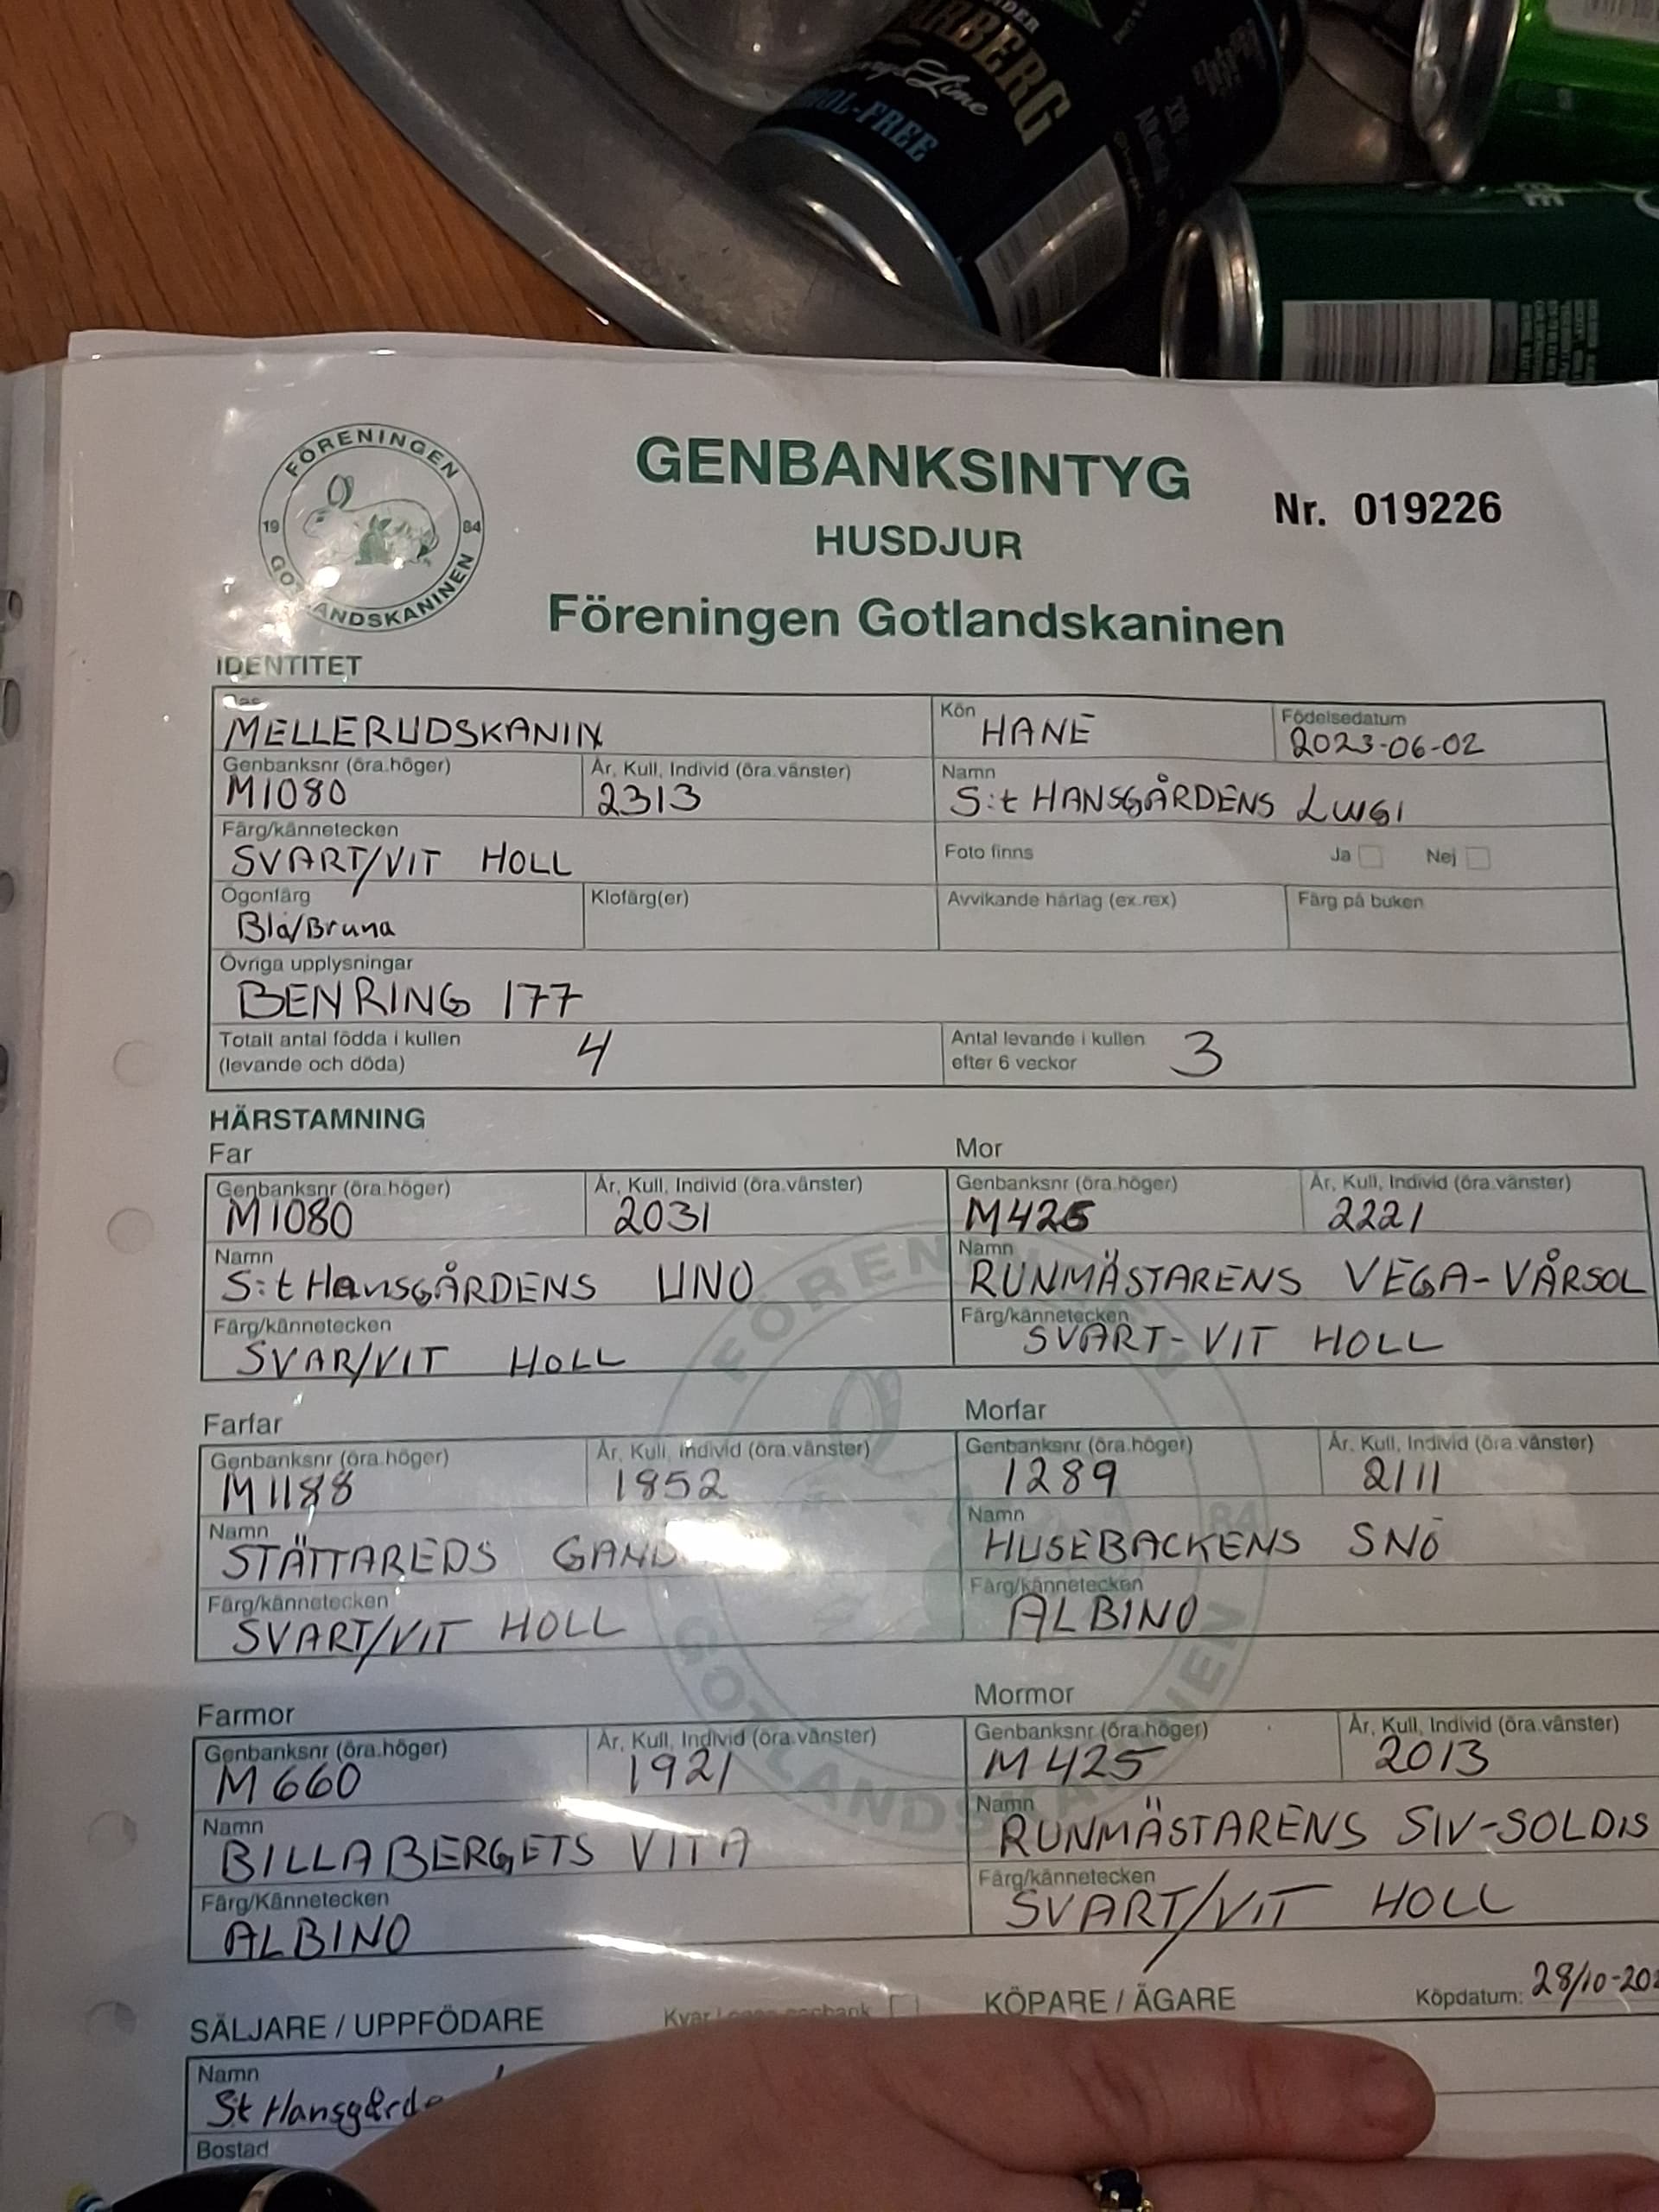 BERG
Lime
-FREE
FÖRENINGEN
19 84
GOTLANDSKANINEN
GENBANKSINTYG
Nr. 019226
HUSDJUR
Föreningen Gotlandskaninen
IDENTITET
MELLERUDSKANIN
Kön HANE
Födelsedatum 2023-06-02
Genbanksnr (öra.höger) M1080
År, Kull, Individ (öra.vänster) 2313
Namn S:t HANSGÅRDENS LUIGI
Färg/kännetecken SVART/VIT HOLL
Foto finns Ja Nej
Ögonfärg Blå/Bruna
Klofärg(er)
Avvikande hårlag (ex.rex)
Färg på buken
Övriga upplysningar
BENRING 177
Totalt antal födda i kullen 4
(levande och döda)
Antal levande i kullen 3
efter 6 veckor
HÄRSTAMNING
Far
Genbanksnr (öra.höger) M1080
År, Kull, Individ (öra.vänster) 2031
Namn S:t HansGÅRDENS UNO
Färg/kännetecken SVAR/VIT HOLL
Mor
Genbanksnr (öra.höger) M425
År, Kull, Individ (öra.vänster) 2221
Namn RUNMÄSTARENS VEGA-VÅRSOL
Färg/kännetecken SVART-VIT HOLL
Farfar
Genbanksnr (öra.höger) M1188
År, Kull, Individ (öra.vänster) 1852
Namn STÄTTAREDS
Färg/kännetecken SVART/VIT HOLL
Morfar
Genbanksnr (öra.höger) 1289
År, Kull, Individ (öra.vänster) 2111
Namn HUSEBACKENS SNÖ
Färg/kännetecken ALBINO
Farmor
Genbanksnr (öra.höger) M660
År, Kull, Individ (öra.vänster) 1921
Namn BILLABERGETS VITA
Färg/Kännetecken ALBINO
Mormor
Genbanksnr (öra.höger) M425
År, Kull, Individ (öra.vänster) 2013
Namn RUNMÄSTARENS SIV-SOLDIS
Färg/kännetecken SVART/VIT HOLL
SÄLJARE / UPPFÖDARE
KÖPARE / ÄGARE
Köpdatum: 28/10-202
Namn
St Hansgårde
Bostad